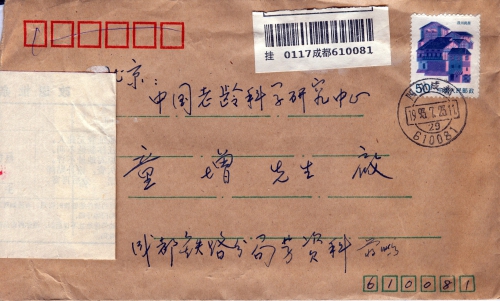 挂 0117成都610081
50
中国人民邮政
1995.7.25.11
29
610081
北京:
中国老龄科学研究中心
童增先生
成都铁路分局劳资科
610081